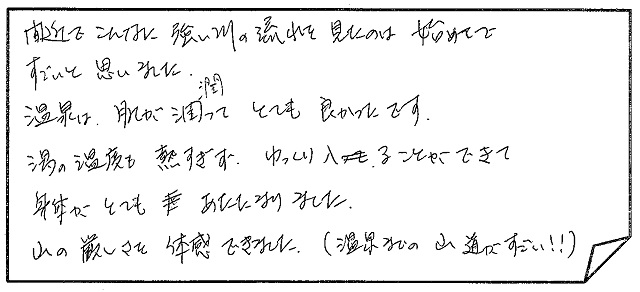 間近でこんなに強い川の流れを見たのは始めてで
すごいと思いました。
温泉は、肌が潤って とても 良かったです。
湯の温度も 熱すぎず、ゆっくり入ることができて
身体がとても あたたまりました。
山の厳しさを 体感できました。(温泉までの 山道がすごい!!)